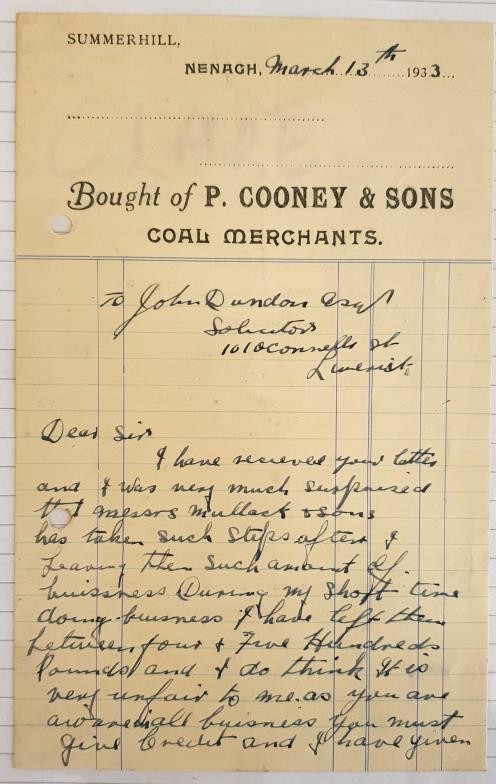 SUMMERHILL,
NENAGH, March 13th 1933
Bought of P. COONEY & SONS
COAL MERCHANTS.
To John Dundon Esqr
Solicitor
101 OConnells St
Limerick
Dear Sir
I have recieved your letter
and I was very much surprised
that messrs Mullock & Sons
has taken such steps after I
Leaving them such amount of
buissness During my short time
doing buisness I have left them
between four & Five Hundreds
Pounds and I do think It is
very unfair to me. as you are
aware in all buisness you must
give Credit and I have given